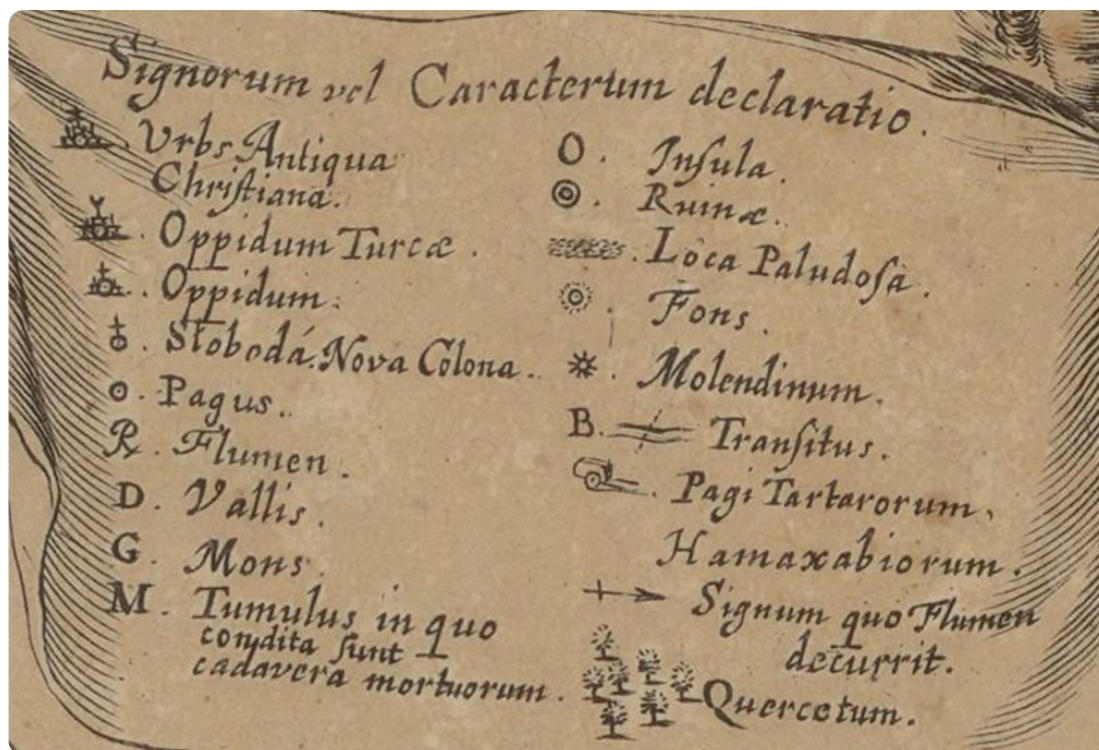 Signorum vel Caracterum declaratio.
Vrbs Antiqua
Chriſtiana.
Oppidum Turcæ.
Oppidum.
Slobodá. Nova Colona.
o. Pagus.
R. Flumen.
D. Vallis.
G. Mons.
M. Tumulus in quo
condita ſunt
cadavera mortuorum.
O. Inſula.
Ruinæ.
Loca Paludoſa.
Fons.
Molendinum.
B. Tranſitus.
Pagi Tartarorum,
Hamaxabiorum.
Signum quo Flumen
decurrit.
Quercetum.